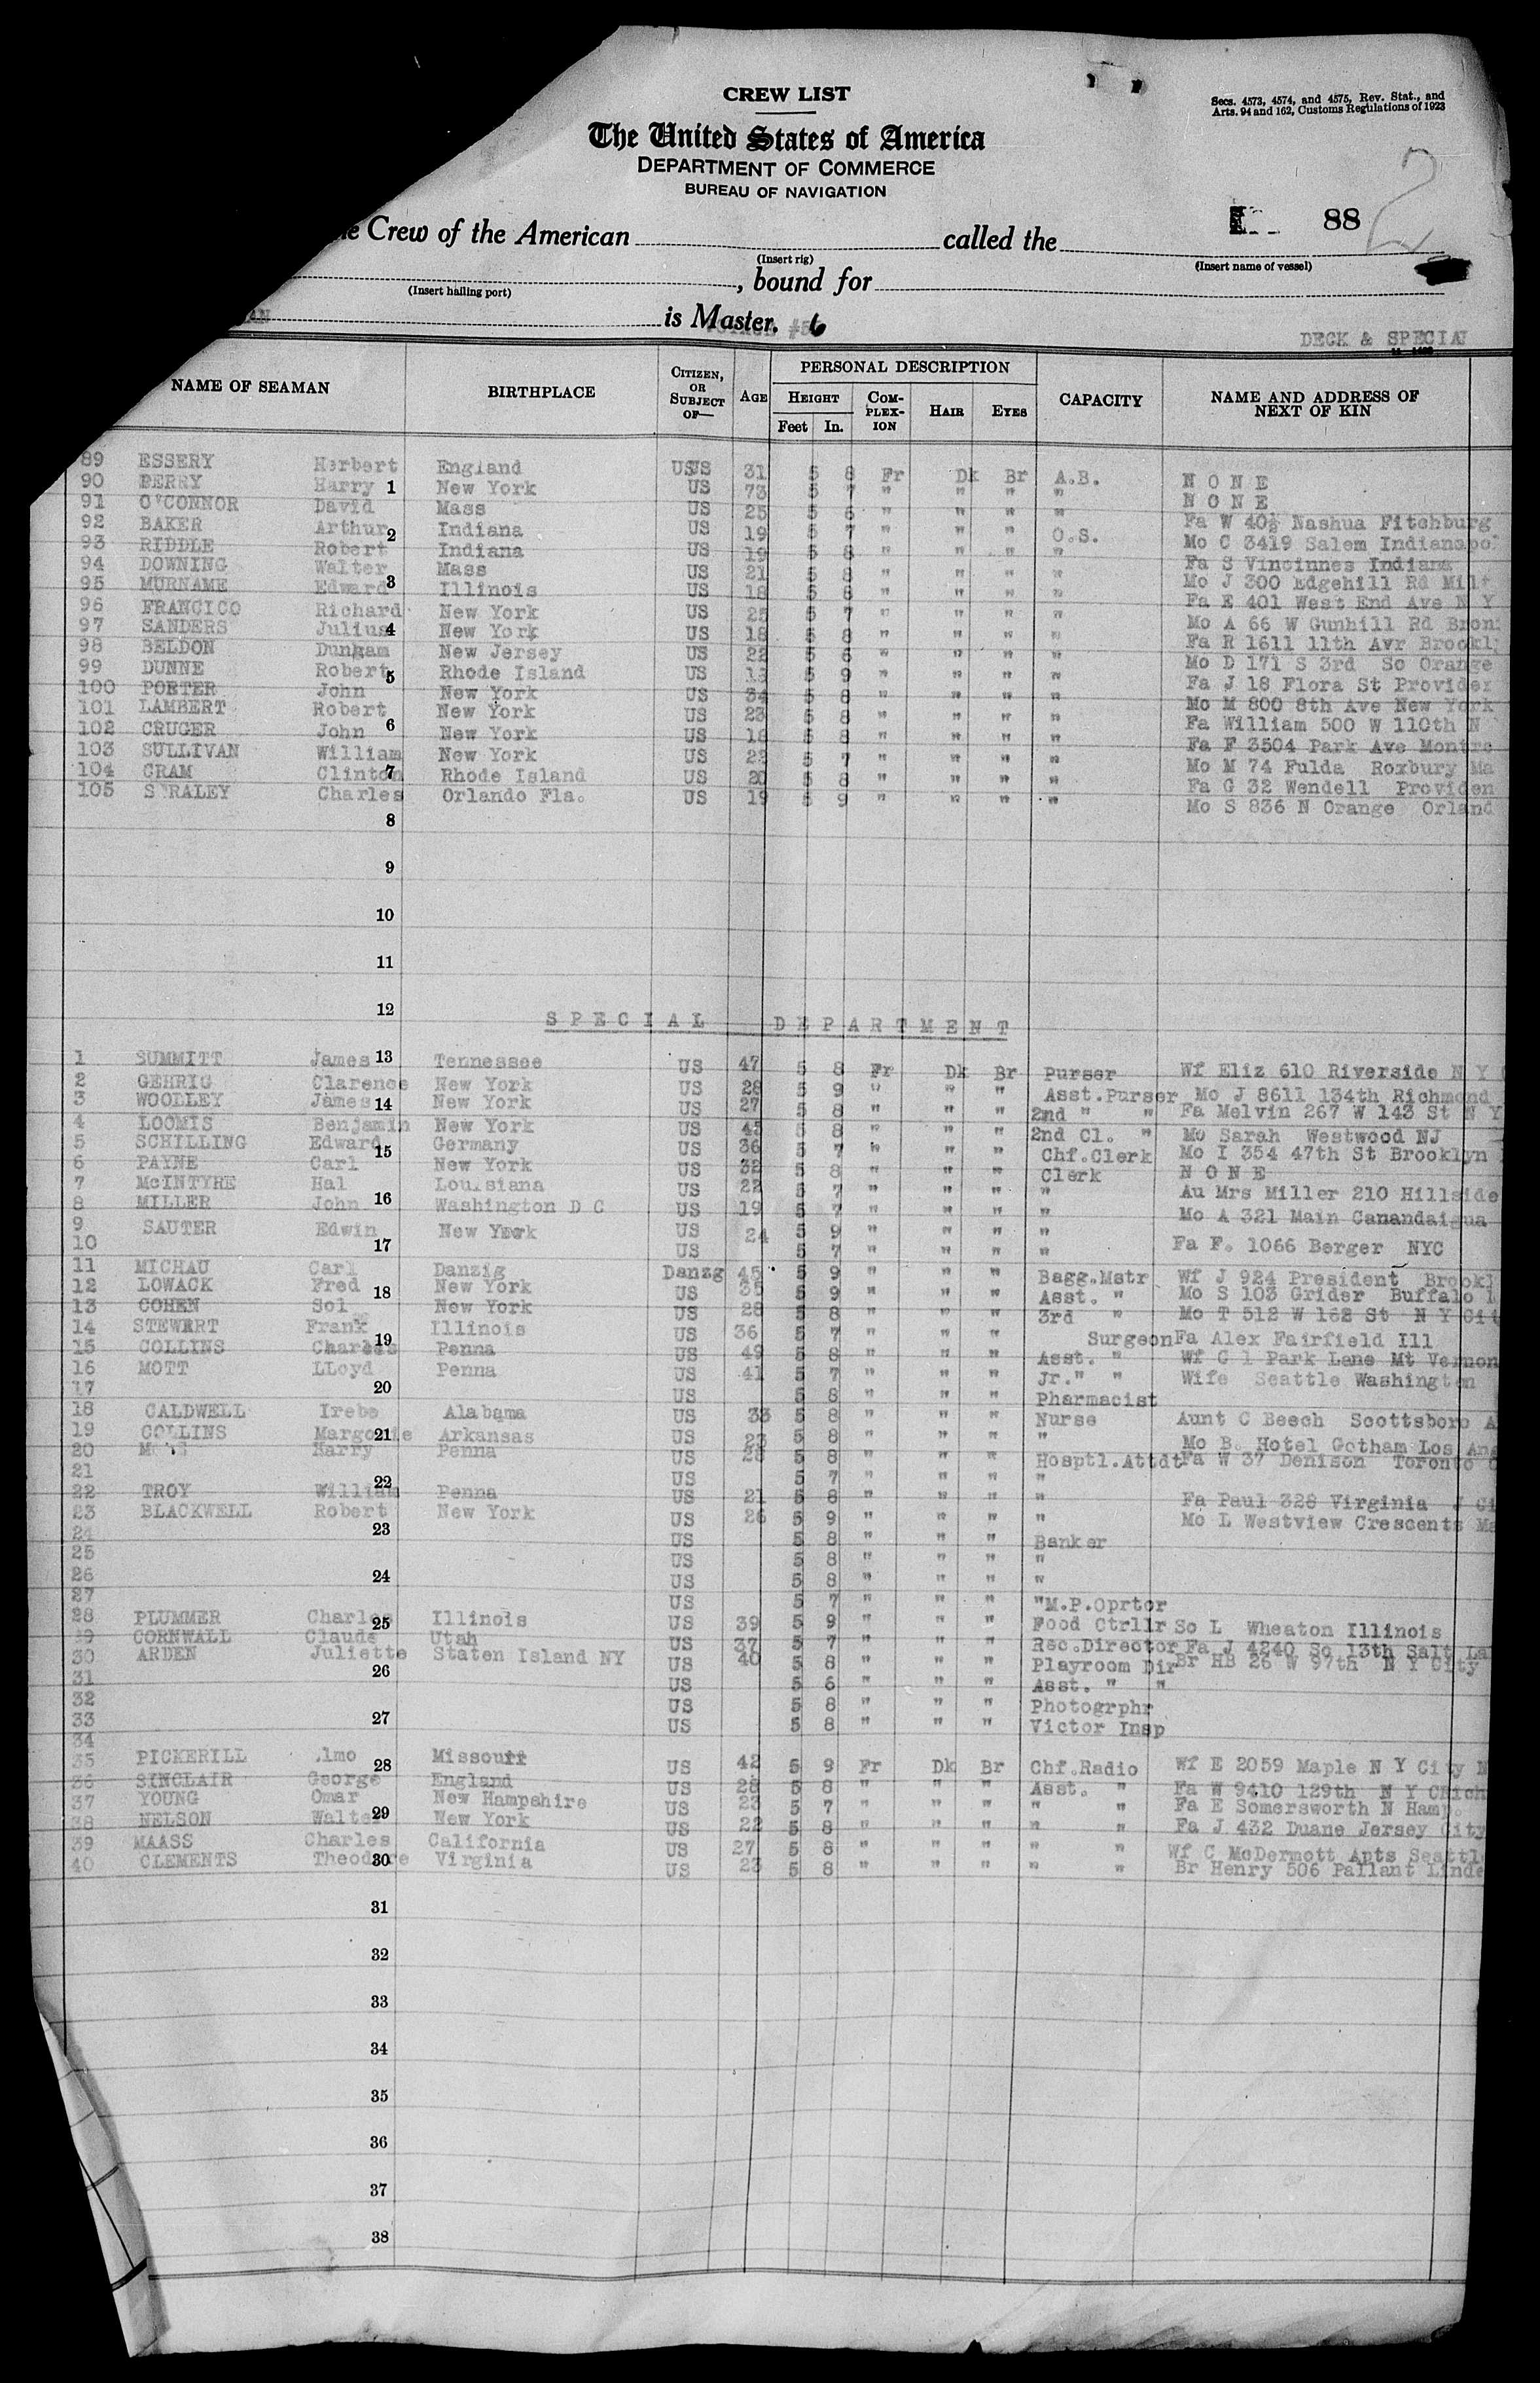 CREW LIST
Secs. 4573, 4574, and 4575, Rev. Stat., and
Arts. 94 and 162, Customs Regulations of 1923
The United States of America
DEPARTMENT OF COMMERCE
BUREAU OF NAVIGATION
88 2
Crew of the American called the
(Insert rig) (Insert name of vessel)
, bound for
(Insert hailing port)
is Master. 6
DECK & SPECIAL
NAME OF SEAMAN BIRTHPLACE CITIZEN, OR SUBJECT OF— AGE PERSONAL DESCRIPTION CAPACITY NAME AND ADDRESS OF NEXT OF KIN
HEIGHT COM-PLEX-ION HAIR EYES
Feet In.
89 ESSERY Herbert England US 31 5 8 Fr Dk Br A.B. N O N E
90 BERRY Harry 1 New York US 73 5 7 " " " " N O N E
91 O'CONNOR David Mass US 25 5 6 " " " " Fa W 40½ Nashua Fitchburg
92 BAKER Arthur 2 Indiana US 19 5 7 " " " O.S. Mo C 3419 Salem Indianapol
93 RIDDLE Robert Indiana US 19 5 8 " " " " Fa S Vincinnes Indiana
94 DOWNING Walter Mass US 21 5 8 " " " " Mo J 300 Edgehill Rd Milt
95 MURNAME Edward 3 Illinois US 18 5 8 " " " " Fa E 401 West End Ave N Y
96 FRANCICO Richard New York US 25 5 7 " " " " Mo A 66 W Gunhill Rd Bron
97 SANDERS Julius 4 New York US 18 5 8 " " " " Fa R 1611 11th Avr Brookl
98 BELDON Dunham New Jersey US 22 5 6 " " " " Mo D 171 S 3rd So Orange
99 DUNNE Robert 5 Rhode Island US 5 9 " " " " Fa J 18 Flora St Providen
100 PORTER John New York US 34 5 8 " " " " Mo M 800 8th Ave New York
101 LAMBERT Robert New York US 23 5 8 " " " " Fa William 500 W 110th N
102 CRUGER John 6 New York US 18 5 8 " " " " Fa F 3504 Park Ave Montre
103 SULLIVAN William New York US 22 5 7 " " " " Mo M 74 Fulda Roxbury Ma
104 CRAM Clinton 7 Rhode Island US 20 5 8 " " " " Fa G 32 Wendell Providen
105 STRALEY Charles Orlando Fla. US 19 5 9 " " " " Mo S 836 N Orange Orland
8
9
10
11
12
S P E C I A L D E P A R T M E N T
1 SUMMITT James 13 Tennessee US 47 5 8 Fr Dk Br Purser Wf Eliz 610 Riverside N Y
2 GEHRIG Clarence New York US 28 5 9 " " " Asst.Purser Mo J 8611 134th Richmond
3 WOODLEY James 14 New York US 27 5 8 " " " 2nd " " Fa Melvin 267 W 143 St N Y
4 LOOMIS Benjamin New York US 43 5 8 " " " 2nd Cl. " Mo Sarah Westwood NJ
5 SCHILLING Edward 15 Germany US 36 5 7 " " " Chf.Clerk Mo I 354 47th St Brooklyn
6 PAYNE Carl New York US 32 5 8 " " " Clerk N O N E
7 McINTYRE Hal Louisiana US 22 5 7 " " " " Au Mrs Miller 210 Hillside
8 MILLER John 16 Washington D C US 19 5 7 " " " " Mo A 321 Main Canandaigua
9 SAUTER Edwin New York US 24 5 9 " " " "
10 17 US 5 7 " " " " Fa F. 1066 Berger NYC
11 MICHAU Carl Danzig Danzg 45 5 9 " " " Bagg.Mstr Wf J 924 President Brookl
12 LOWACK Fred 18 New York US 35 5 9 " " " Asst. " Mo S 103 Grider Buffalo
13 COHEN Sol New York US 28 5 8 " " " 3rd " Mo T 512 W 162 St N Y Cit
14 STEWART Frank Illinois US 36 5 7 " " " Surgeon Fa Alex Fairfield Ill
15 COLLINS Charles 19 Penna US 49 5 8 " " " Asst. " Wf C 1 Park Lane Mt Vernon
16 MOTT LLoyd Penna US 41 5 7 " " " Jr." " Wife Seattle Washington
17 20 US 5 8 " " " Pharmacist
18 CALDWELL Irebe Alabama US 33 5 8 " " " Nurse Aunt C Beech Scottsboro A
19 COLLINS Margorie 21 Arkansas US 23 5 8 " " " " Mo B. Hotel Gotham Los Ang
20 Harry Penna US 28 5 8 " " " Hosptl.Attdt Fa W 37 Denison Toronto
21 US 5 7 " " " "
22 TROY William 22 Penna US 21 5 8 " " " " Fa Paul 328 Virginia J Ci
23 BLACKWELL Robert New York US 26 5 9 " " " " Mo L Westview Crescents Ma
24 23 US 5 8 " " " Banker
25 US 5 8 " " " "
26 24 US 5 8 " " " "
27 US 5 7 " " " "M.P.Oprtor
28 PLUMMER Charles 25 Illinois US 39 5 9 " " " Food Ctrllr So L Wheaton Illinois
29 CORNWALL Claude Utah US 37 5 7 " " " Rec.Director Fa J 4240 So 13th Salt La
30 ARDEN Juliette Staten Island NY US 40 5 8 " " " Playroom Dir Br HB 26 W 97th N Y City
31 26 US 5 6 " " " Asst. " "
32 US 5 8 " " " Photogrphr
33 27 US 5 8 " " " Victor Insp
34
35 PICKERILL lmo 28 Missouri US 42 5 9 Fr Dk Br Chf.Radio Wf E 2059 Maple N Y City N
36 SINCLAIR George England US 28 5 8 " " " Asst. " Fa W 9410 129th N Y CRich
37 YOUNG Omar New Hampshire US 23 5 7 " " " " " Fa E Somersworth N Hamp.
38 NELSON Walter 29 New York US 22 5 8 " " " " " Fa J 432 Duane Jersey City
39 MAASS Charles California US 27 5 8 " " " " " Wf C McDermott Apts Seattle
40 CLEMENTS Theodore 30 Virginia US 23 5 8 " " " " " Br Henry 506 Pallant Linde
31
32
33
34
35
36
37
38